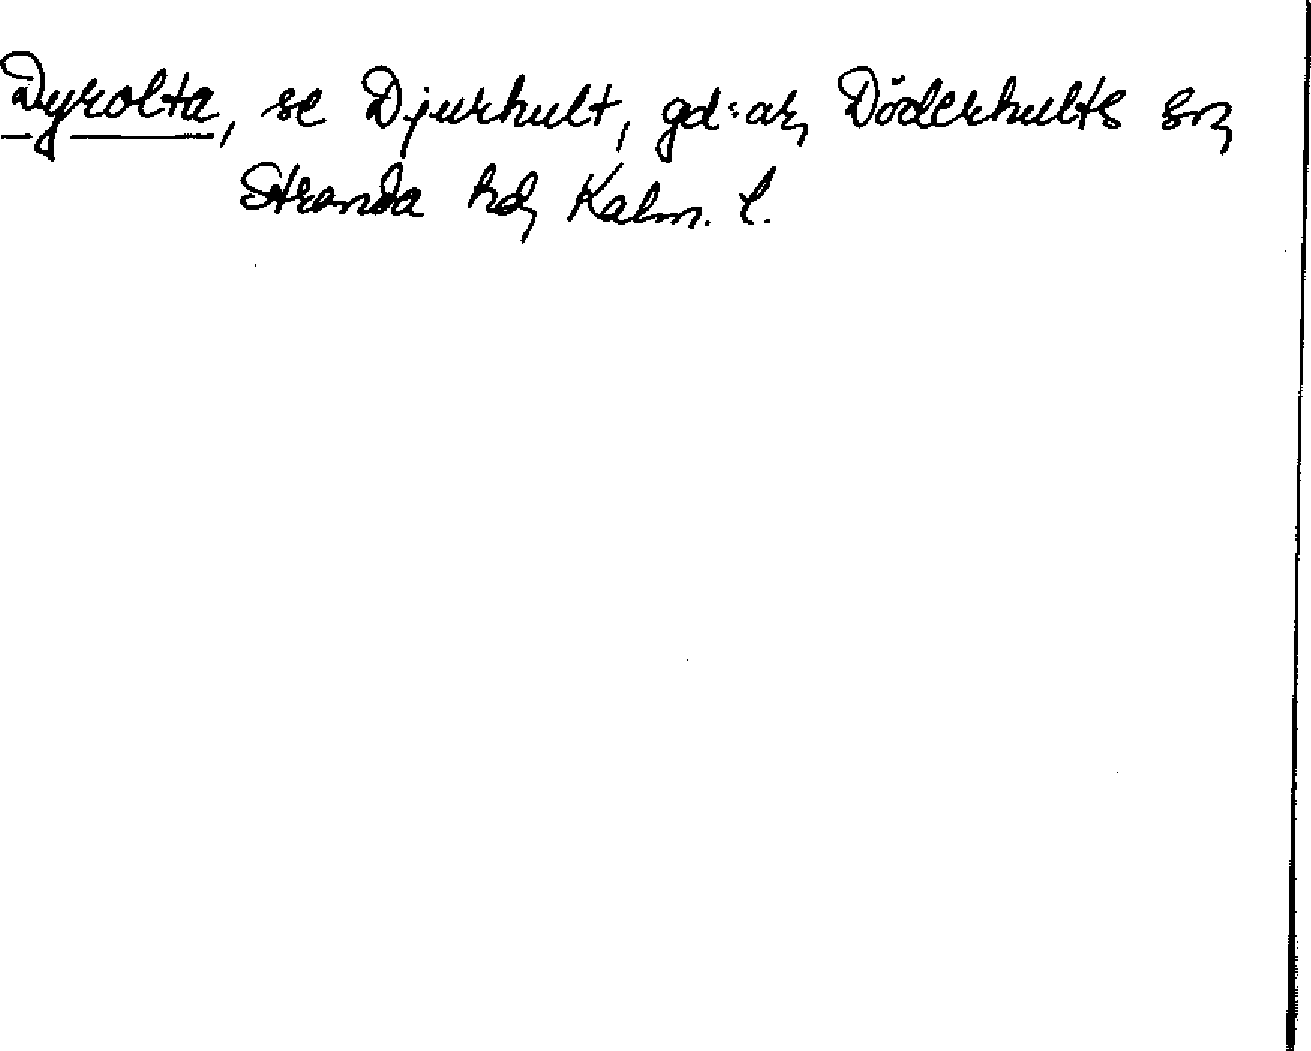 Dyrolta, se Djurhult, gd:ar, Döderhults sn,
Stranda hd, Kalm. l.